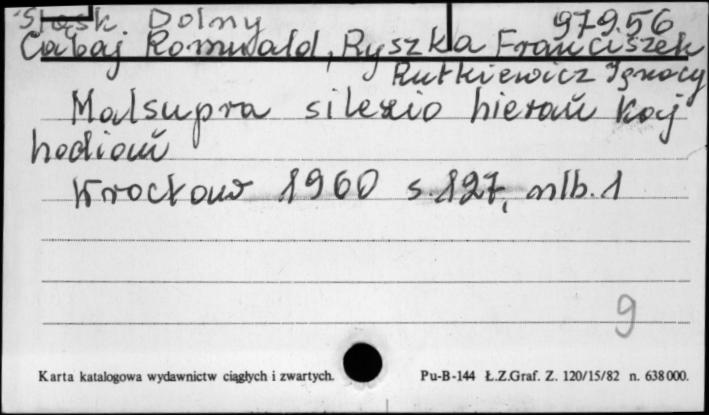 Śląsk Dolny 97956
Cabaj Romuald, Ryszka Franciszek
Rutkiewicz Ignacy
Malsupra silezio hieraŭ kaj
hodiaŭ
Wrocław 1960 s. 127, nlb. 1
9
Karta katalogowa wydawnictw ciągłych i zwartych. Pu-B-144 Ł.Z.Graf. Z. 120/15/82 n. 638000.